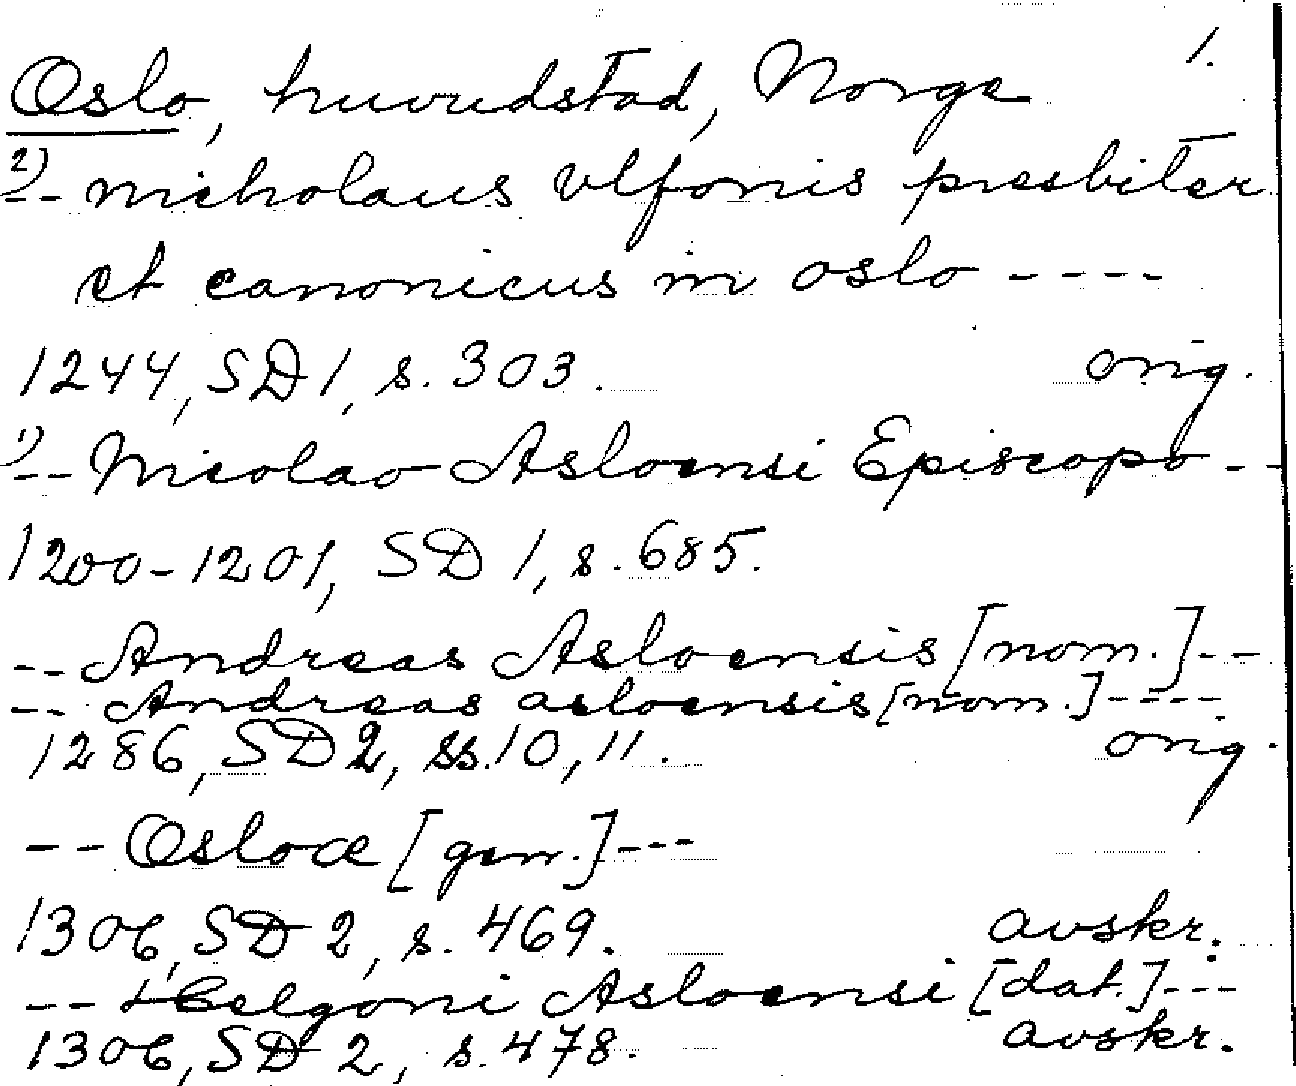 1.
Oslo, huvudstad, Norge
2)
-- nicholaus vlfonis presbiter
et canonicus in oslo ----
1244, SD 1, s. 303. orig.
1)
-- Nicolao Asloensi Episcopo --
1200-1201, SD 1, s. 685.
-- Andreas Asloensis [nom.] --
-- Andreas asloensis [nom.] ----
1286, SD 2, ss. 10, 11. orig.
-- Osloæ [gen.] ---
1306, SD 2, s. 469. avskr.
-- Helgoni Asloensi [dat.] ---
1306, SD 2, s. 478. avskr.